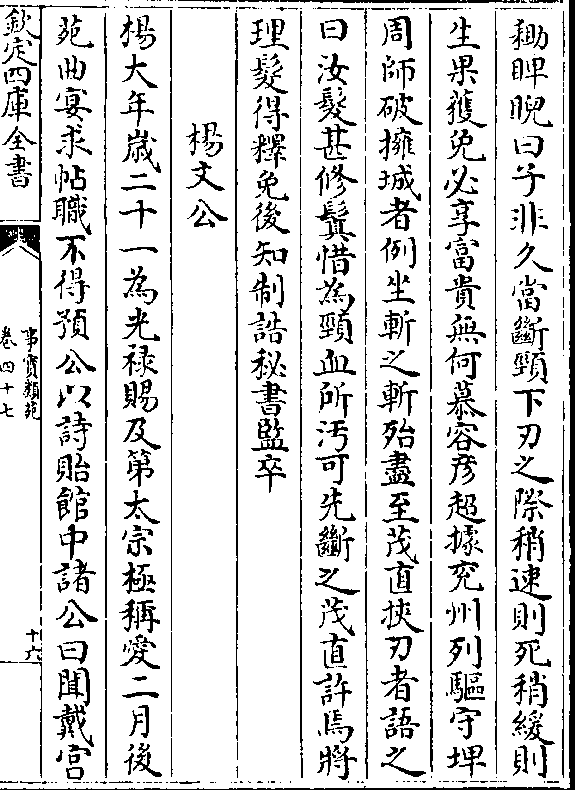 鋤睥睨曰子非久當斷頸下刃之際稍速則死稍緩則
生果獲免必享富貴無何慕容彦超據兖州列驅守埤
周師破擁城者例坐斬之斬殆盡至茂直挾刃者語之
曰汝髮甚修鬒惜為頸血所汚可先斷之茂直許焉將
理髮得釋免後知制誥秘書監卒
楊文公
楊大年歲二十一為光禄賜及第太宗極稱愛二月後
苑曲宴求帖職不得預公以詩貽館中諸公曰聞戴宫
欽定四庫全書
事實類苑
卷四十七
十六